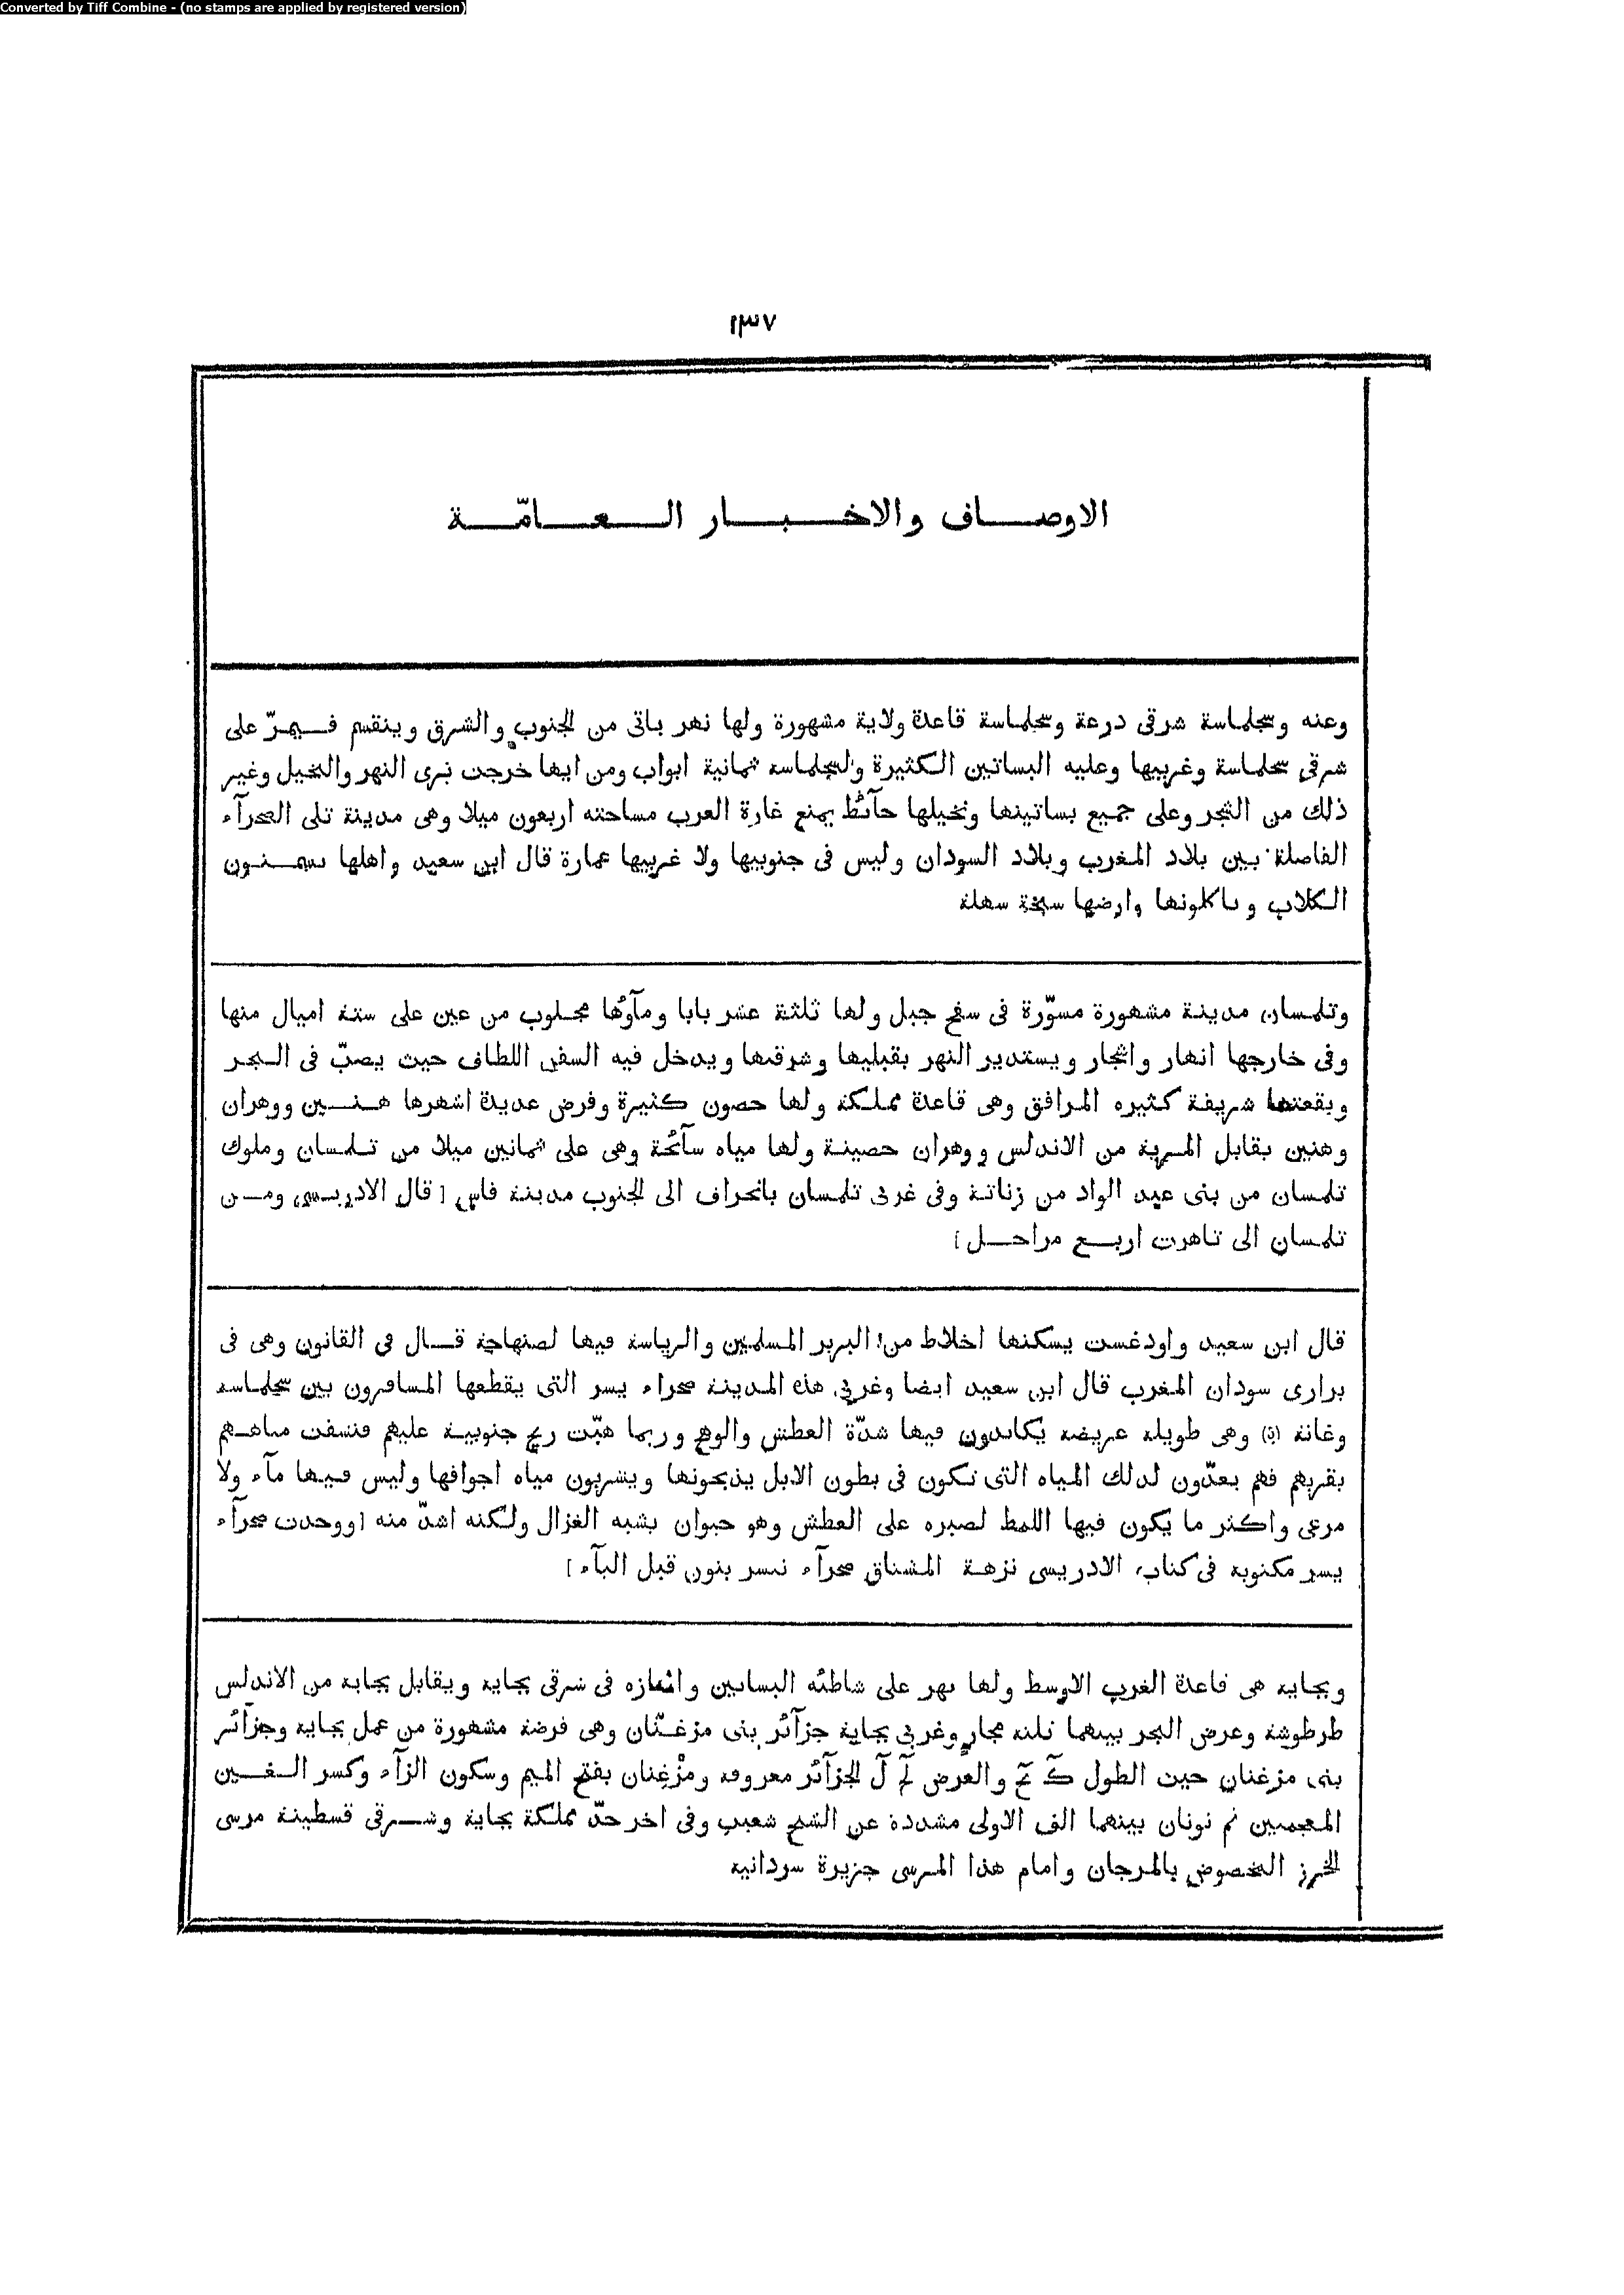 Converted by Tiff Combine - (no stamps are applied by registered version)
١٣٧
الاوصاف والاخبار العامّة
وعنه وسجلماسة شرقى درعة وسجلماسة قاعدة ولاية مشهورة ولها نهر ياتى من الجنوب والشرق وينقسم فيمرّ على
شرقى سجلماسة وغربيها وعليه البساتين الكثيرة ولسجلماسه ثمانية ابواب ومن ايها خرجت ترى النهر والنخيل وغير
ذلك من الشجر وعلى جميع بساتينها ونخيلها حآئط يمنع غارة العرب مساحته اربعون ميلا وهى مدينة تلى الصحرآء
الفاصلة بين بلاد المغرب وبلاد السودان وليس فى جنوبيها ولا غربيها عمارة قال ابن سعيد واهلها يسمنون
الكلاب وياكلونها وارضها سبخة سهلة
وتلمسان مدينة مشهورة مسوّرة فى سفح جبل ولها ثلثة عشر بابا ومآوُها مجلوب من عين على ستة اميال منها
وفى خارجها انهار واشجار ويستدير النهر بقبليها وشرقيها ويدخل فيه السفن اللطاف حيث يصبّ فى البحر
وبقعتها شريفة كثيره المرافق وهى قاعدة مملكة ولها حصون كثيرة وفرض عديدة اشهرها هنين ووهران
وهنين يقابل المرية من الاندلس ووهران حصينة ولها مياه سآئحة وهى على ثمانين ميلا من تلمسان وملوك
تلمسان من بنى عبد الواد من زناتة وفى غربى تلمسان بانحراف الى الجنوب مدينة فاس [قال الادريسى ومن
تلمسان الى تاهرت اربع مراحل]
قال ابن سعيد واودغست يسكنها اخلاط من البربر المسلمين والرياسة فيها لصنهاجة قال فى القانون وهى فى
برارى سودان المغرب قال ابن سعيد ايضا وغربى هذه المدينة صحراء يسر التى يقطعها المسافرون بين سجلماسه
وغانة وهى طويله عريضه يكابدون فيها شدّة العطش والوهج وربما هبّت ريح جنوبية عليهم فنشفت مياههم
بقربهم فهم يعدّون لذلك المياه التى تكون فى بطون الابل يذبحونها ويشربون مياه اجوافها وليس فيها مآء ولا
مرعى واكثر ما يكون فيها اللمط لصبره على العطش وهو حيوان يشبه الغزال ولكنه اشدّ منه [ووجدت صحرآء
يسر مكتوبه فى كتاب الادريسى نزهة المشتاق صحرآء نيسر بنون قبل اليآء]
وبجايه هى قاعدة الغرب الاوسط ولها نهر على شاطئه البساتين وانتهازه فى شرقى بجايه ويقابل بجايه من الاندلس
طرطوشة وعرض البحر بينهما ثلثه مجار وغربى بجاية جزآئر بنى مزغنّان وهى فرضة مشهورة من عمل بجايه وجزآئر
بنى مزغنان حيث الطول كَ نَح والعرض لَج لَ الجزآئر معروفه ومزْغِنان بفتح الميم وسكون الزآء وكسر الغين
المعجمين ثم نونان بينهما الف الاولى مشددة عن الشيخ شعيب وفى اخر حدّ مملكة بجاية وشرقى قسطينة مرسى
الخرز المخصوص بالمرجان وامام هذا المرسى جزيرة سردانيه